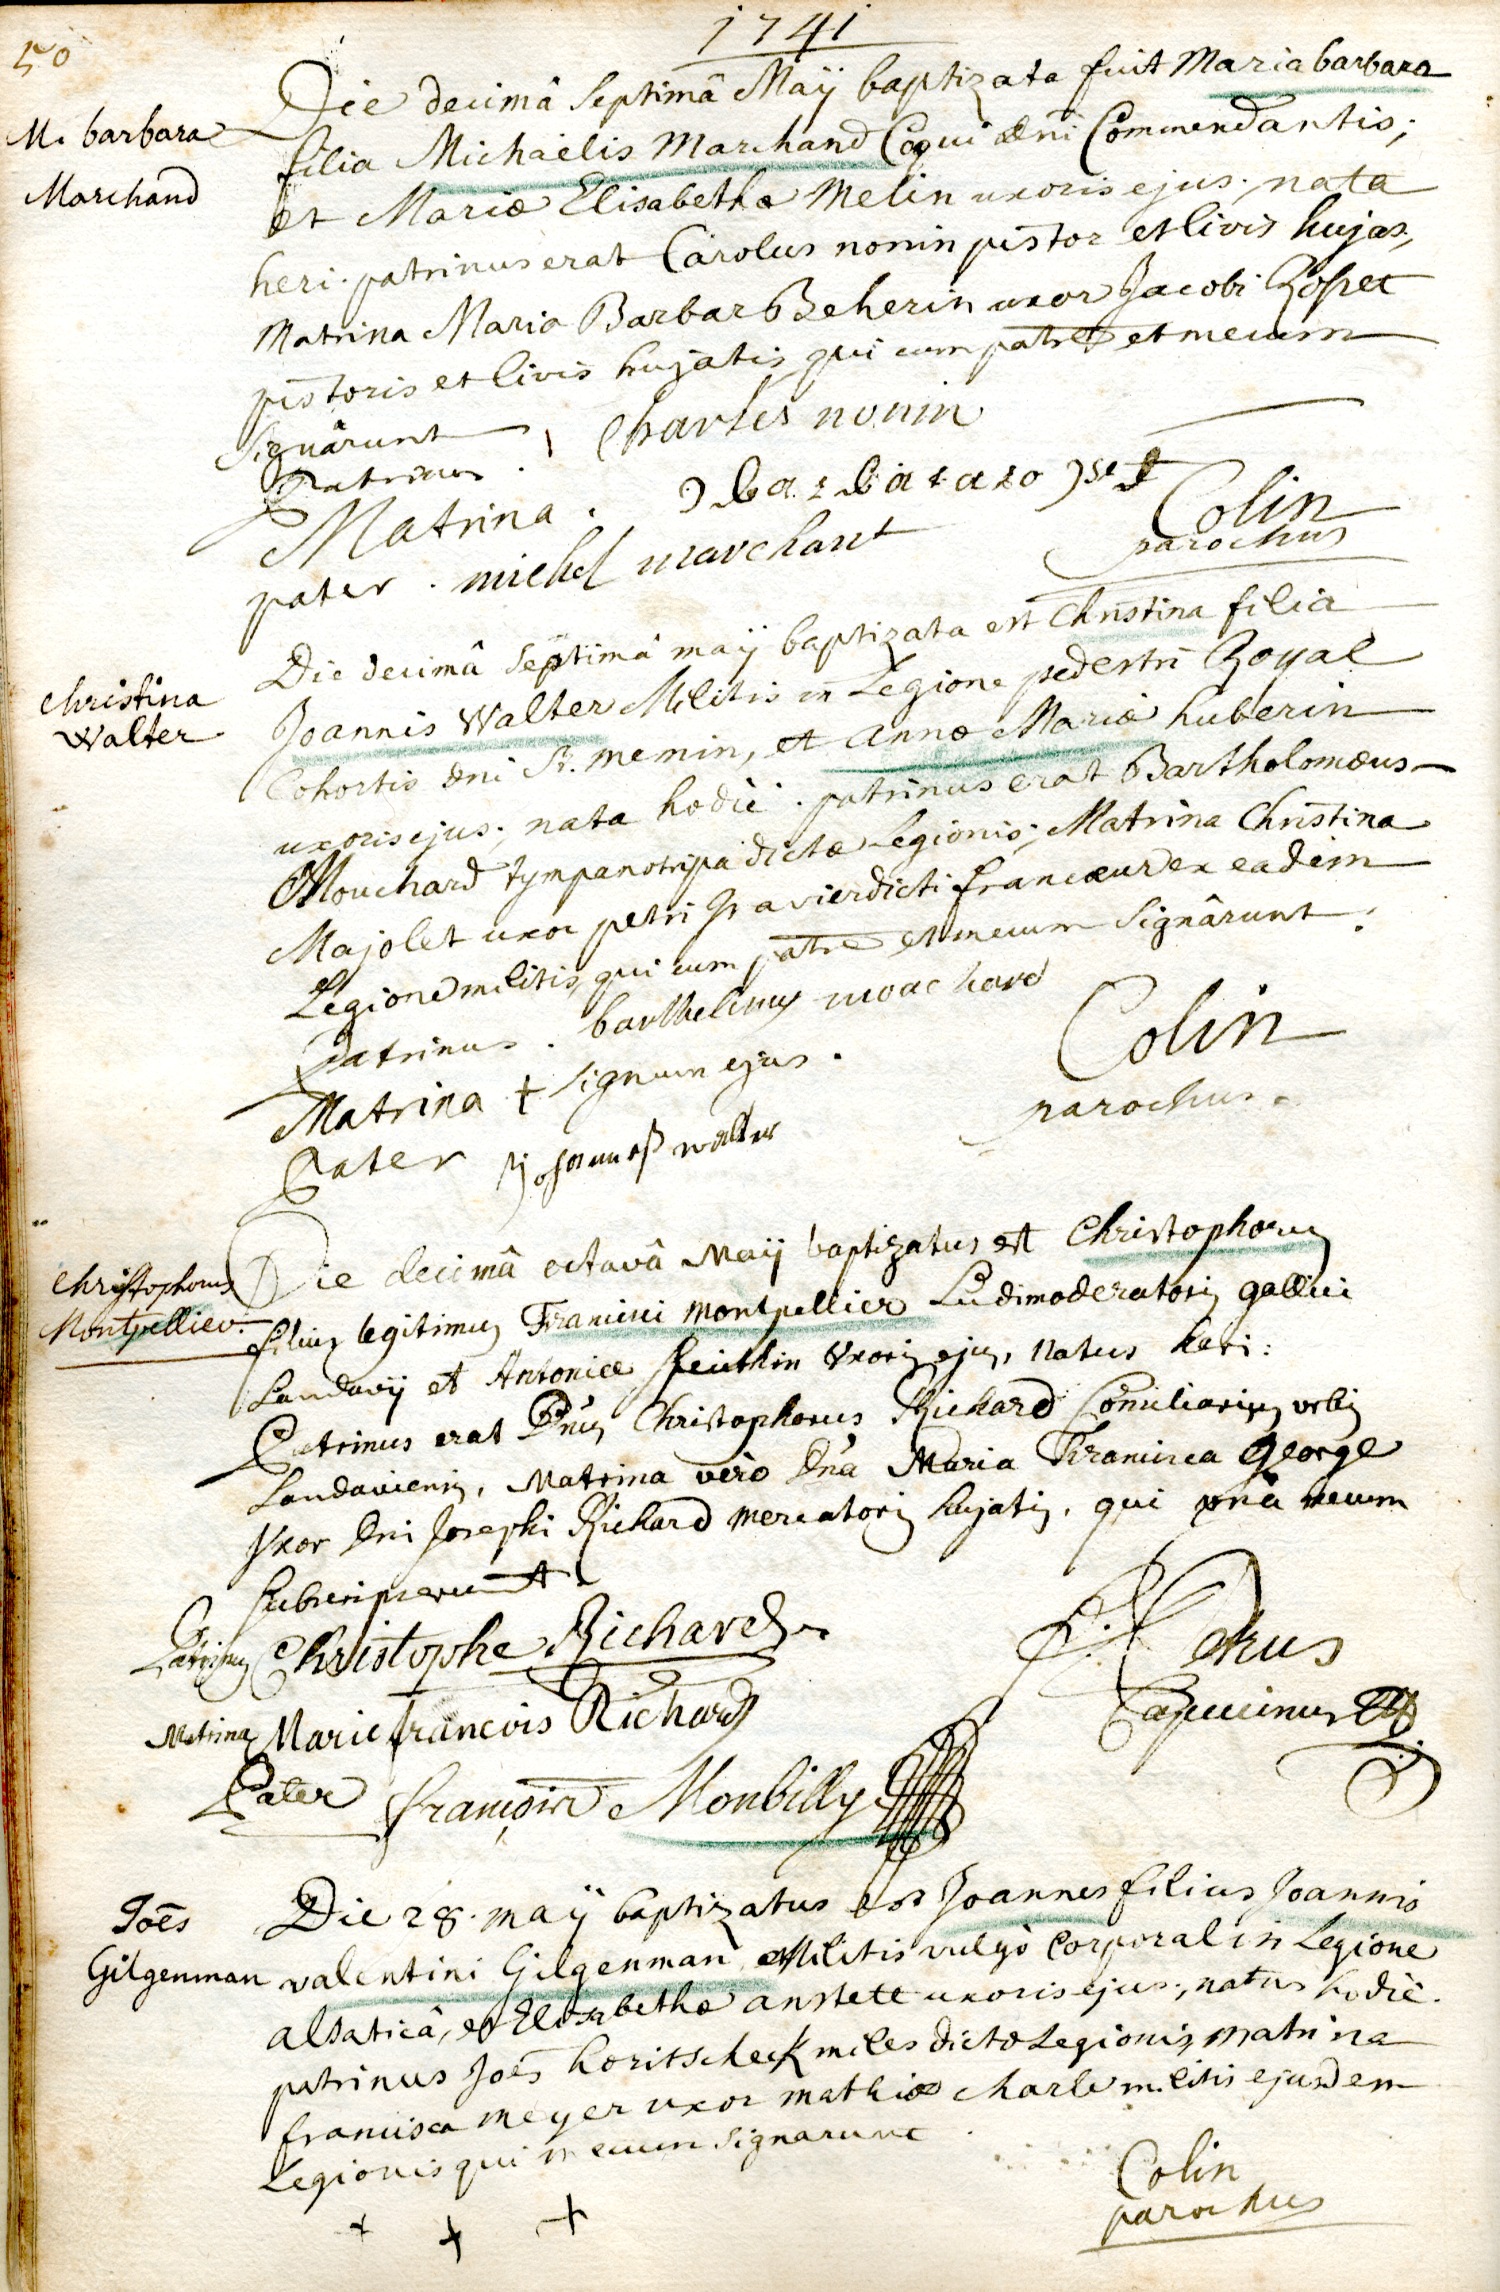 50
1741
M. barbara
Marchand
Die decimâ Septimâ Maÿ baptizata fuit Maria barbara
filia Michaëlis Marchand Coqui dni Commendantis;
et Mariæ Elisabethæ Melin uxoris ejus; nata
heri. patrinus erat Carolus nonin pistor et Civis hujas,
Matrina Maria Barbar Beherin uxor Jacobi Rosset
pistoris et Civis hujatis, qui cum patre et mecum
Signârunt
Patrinus. Charles nonin
Matrina.
pater. michel marchant
Colin
parochus
Christina
Walter
Die decimâ Septimâ maÿ baptizata est Christina filia
Joannis Walter Militis in Legione pedestri Royal
Cohortis dni St. memin, et annæ Mariæ huberin
uxoris ejus; nata hodiè. patrinus erat Bartholomæus
Mouchard tympanotripa dictæ Legionis; Matrina Christina
Majolet uxor petri Gravier dicti francœur ex eadem
Legione militis, qui cum patre et mecum Signârunt.
Patrinus. barthelimy mouchard
Matrina + Signum ejus.
Pater Joannes walter
Colin
parochus.
Christophorus
Montpellier.
Die decimâ octavâ Maÿ baptizatus est Christophorus
filius legitimus Francisci Montpellier Ludimoderatoris gallici
Landavÿ et Antoniæ Uxoris ejus, natus heri:
Patrinus erat Dnus Christophorus Richard Consiliarius urbis
Landaviensis, Matrina verò dna Maria Francisca George
Uxor dni Josephi Richard mercatoris hujatis, qui unà mecum
Subscripserunt.
Patrinus Christophe Richard
Matrina Marie francois Richard
Pater francois Monbilly
Capucinus
Joes
Gilgenman
Die 28. maÿ baptizatus est Joannes filius Joannis
valentini Gilgenman Militis vulgò Corporal in Legione
alsaticâ, et Elisabethæ anstett uxoris ejus; natus hodiè.
patrinus Joes horitscheck miles dictæ Legionis, Matrina
francisca meyer uxor mathiæ charle militis ejusdem
Legionis qui mecum Signarunt.
+ + +
Colin
parochus